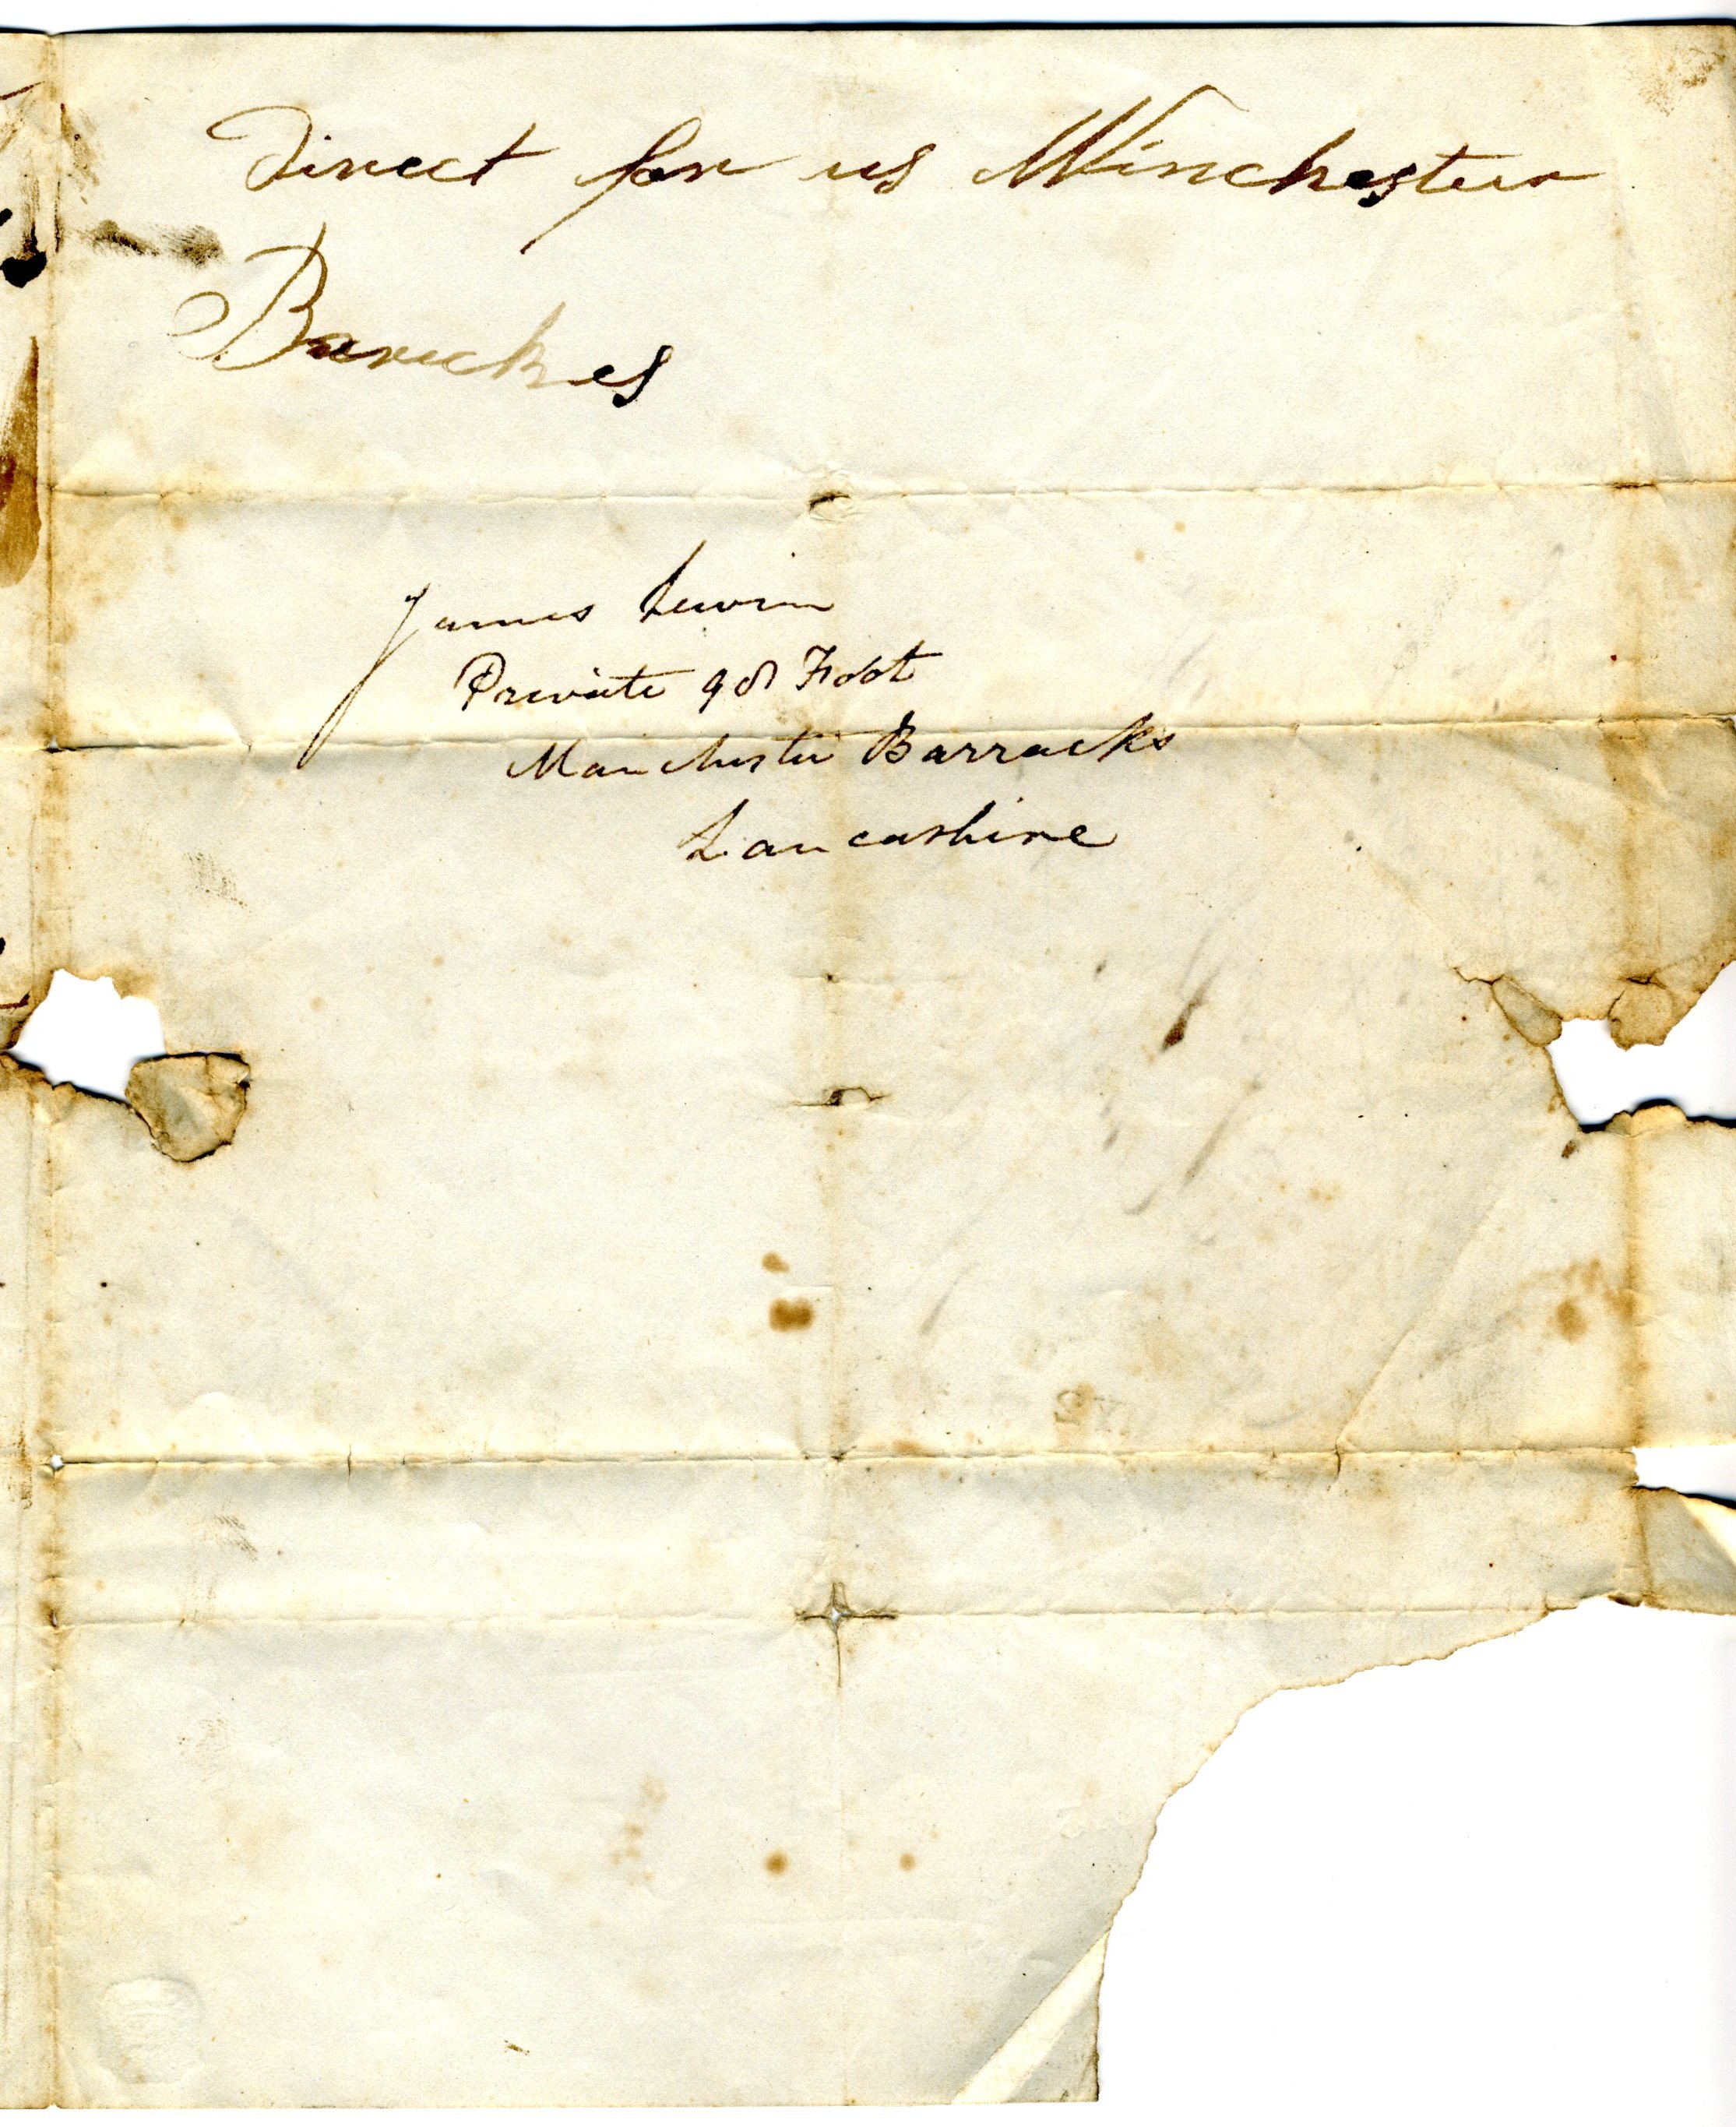 Direct for us Winchester
Barickes
James Lewin
Private 98 Foot
Manchester Barracks
Lancashire